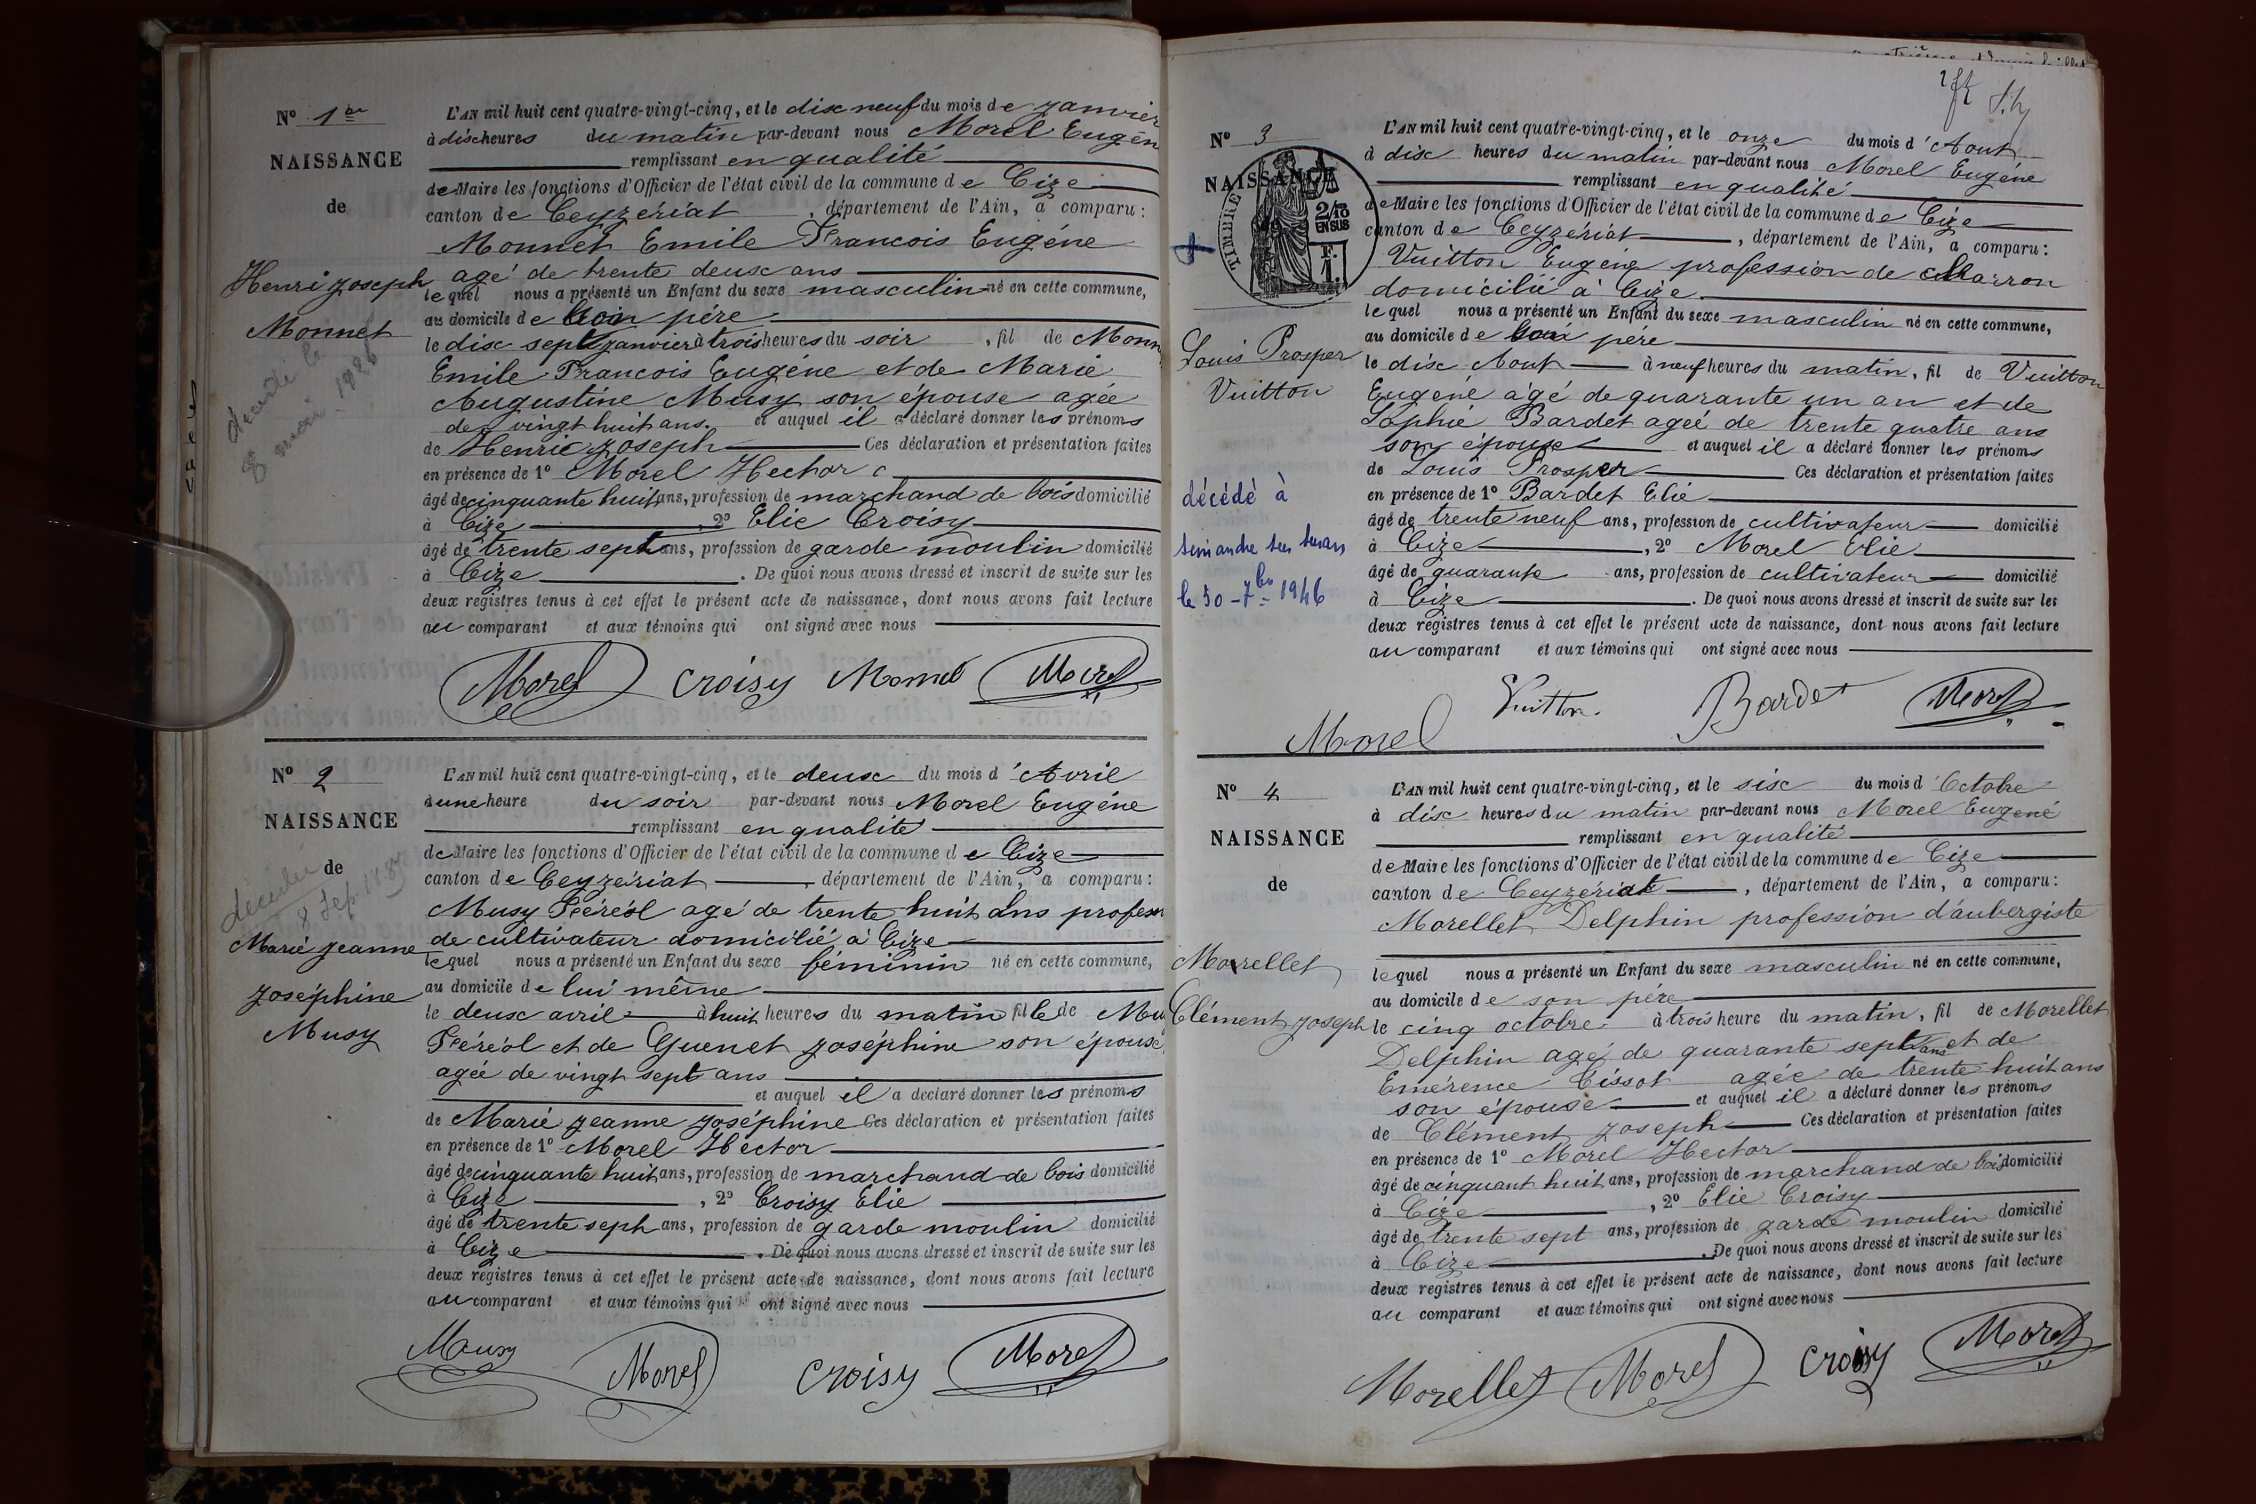 N° 1er
NAISSANCE
de
Henri Joseph
Monnet
L'AN mil huit cent quatre-vingt-cinq, et le disc neuf du mois de Janvier
à disc heures du matin par-devant nous Morel Eugèn
remplissant en qualité
de Maire les fonctions d'Officier de l'état civil de la commune de Cize
canton de Ceyzériat, département de l'Ain, a comparu:
Monnet Emile Francois Eugéne
agé de trente deusc ans
lequel nous a présenté un Enfant du sexe masculin né en cette commune,
au domicile de son père
le disc sept Janvier à trois heures du soir, fil de Monn
Emile Francois Eugéne et de Marie
Augustine Musy son épouse agée
de vingt huit ans. et auquel il a déclaré donner les prénoms
de Henri Joseph Ces déclaration et présentation faites
en présence de 1° Morel Hector
âgé de cinquante huit ans, profession de marchand de bois domicilié
à Cize, 2° Elie Croisy
âgé de trente sept ans, profession de garde moulin domicilié
à Cize. De quoi nous avons dressé et inscrit de suite sur les
deux registres tenus à cet effet le présent acte de naissance, dont nous avons fait lecture
au comparant et aux témoins qui ont signé avec nous
Morel Croisy Monnet Morel
N° 2
NAISSANCE
de
Marie Jeanne
Joséphine
Musy
L'AN mil huit cent quatre-vingt-cinq, et le deusc du mois d'Avril
à une heure du soir par-devant nous Morel Eugéne
remplissant en qualité
de Maire les fonctions d'Officier de l'état civil de la commune de Cize
canton de Ceyzériat, département de l'Ain, a comparu:
Musy Féréol agé de trente huit ans profess
de cultivateur domicilié à Cize
lequel nous a présenté un Enfant du sexe féminin né en cette commune,
au domicile de lui même
le deusc avril à huit heures du matin fille de Mu
Féréol et de Guenet Joséphine son épouse
agée de vingt sept ans
et auquel il a déclaré donner les prénoms
de Marie Jeanne Joséphine Ces déclaration et présentation faites
en présence de 1° Morel Hector
âgé de cinquante huit ans, profession de marchand de bois domicilié
à Cize, 2° Croisy Elie
âgé de trente sept ans, profession de garde moulin domicilié
à Cize. De quoi nous avons dressé et inscrit de suite sur les
deux registres tenus à cet effet le présent acte de naissance, dont nous avons fait lecture
au comparant et aux témoins qui ont signé avec nous
Musy Morel Croisy Morel
N° 3
NAISSANCE
TIMBRE
2/10
EN SUS
F.
1.
Louis Prosper
Vuitton
décédé à
simandre sur suran
le 30 - 7bre 1946
L'AN mil huit cent quatre-vingt-cinq, et le onze du mois d'Aout
à disc heures du matin par-devant nous Morel Eugéne
remplissant en qualité
de Maire les fonctions d'Officier de l'état civil de la commune de Cize
canton de Ceyzériat, département de l'Ain, a comparu:
Vuitton Eugéne profession de charron
domicilié à Cize
lequel nous a présenté un Enfant du sexe masculin né en cette commune,
au domicile de son pére
le disc Aout à neuf heures du matin, fil de Vuitton
Eugéne agé de quarante un an et de
Sophie Bardet ageé de trente quatre ans
son épouse et auquel il a déclaré donner les prénoms
de Louis Prosper Ces déclaration et présentation faites
en présence de 1° Bardet Elie
âgé de trente neuf ans, profession de cultivateur domicilié
à Cize, 2° Morel Elie
âgé de quarante ans, profession de cultivateur domicilié
à Cize. De quoi nous avons dressé et inscrit de suite sur les
deux registres tenus à cet effet le présent acte de naissance, dont nous avons fait lecture
au comparant et aux témoins qui ont signé avec nous
Vuitton. Bardet Morel
Morel
N° 4
NAISSANCE
de
Morellet
Clément Joseph
L'AN mil huit cent quatre-vingt-cinq, et le sisc du mois d'Octobre
à disc heures du matin par-devant nous Morel Eugené
remplissant en qualité
de Maire les fonctions d'Officier de l'état civil de la commune de Cize
canton de Ceyzériat, département de l'Ain, a comparu:
Morellet Delphin profession d'aubergiste
lequel nous a présenté un Enfant du sexe masculin né en cette commune,
au domicile de son pére
le cinq octobre à trois heure du matin, fil de Morellet
Delphin agé de quarante sept ans et de
Emérence Cissot agée de trente huit ans
son épouse et auquel il a déclaré donner les prénoms
de Clément Joseph Ces déclaration et présentation faites
en présence de 1° Morel Hector
âgé de cinquant huit ans, profession de marchand de bois domicilié
à Cize, 2° Elie Croisy
âgé de trente sept ans, profession de garde moulin domicilié
à Cize. De quoi nous avons dressé et inscrit de suite sur les
deux registres tenus à cet effet le présent acte de naissance, dont nous avons fait lecture
au comparant et aux témoins qui ont signé avec nous
Morellet Morel Croisy Morel